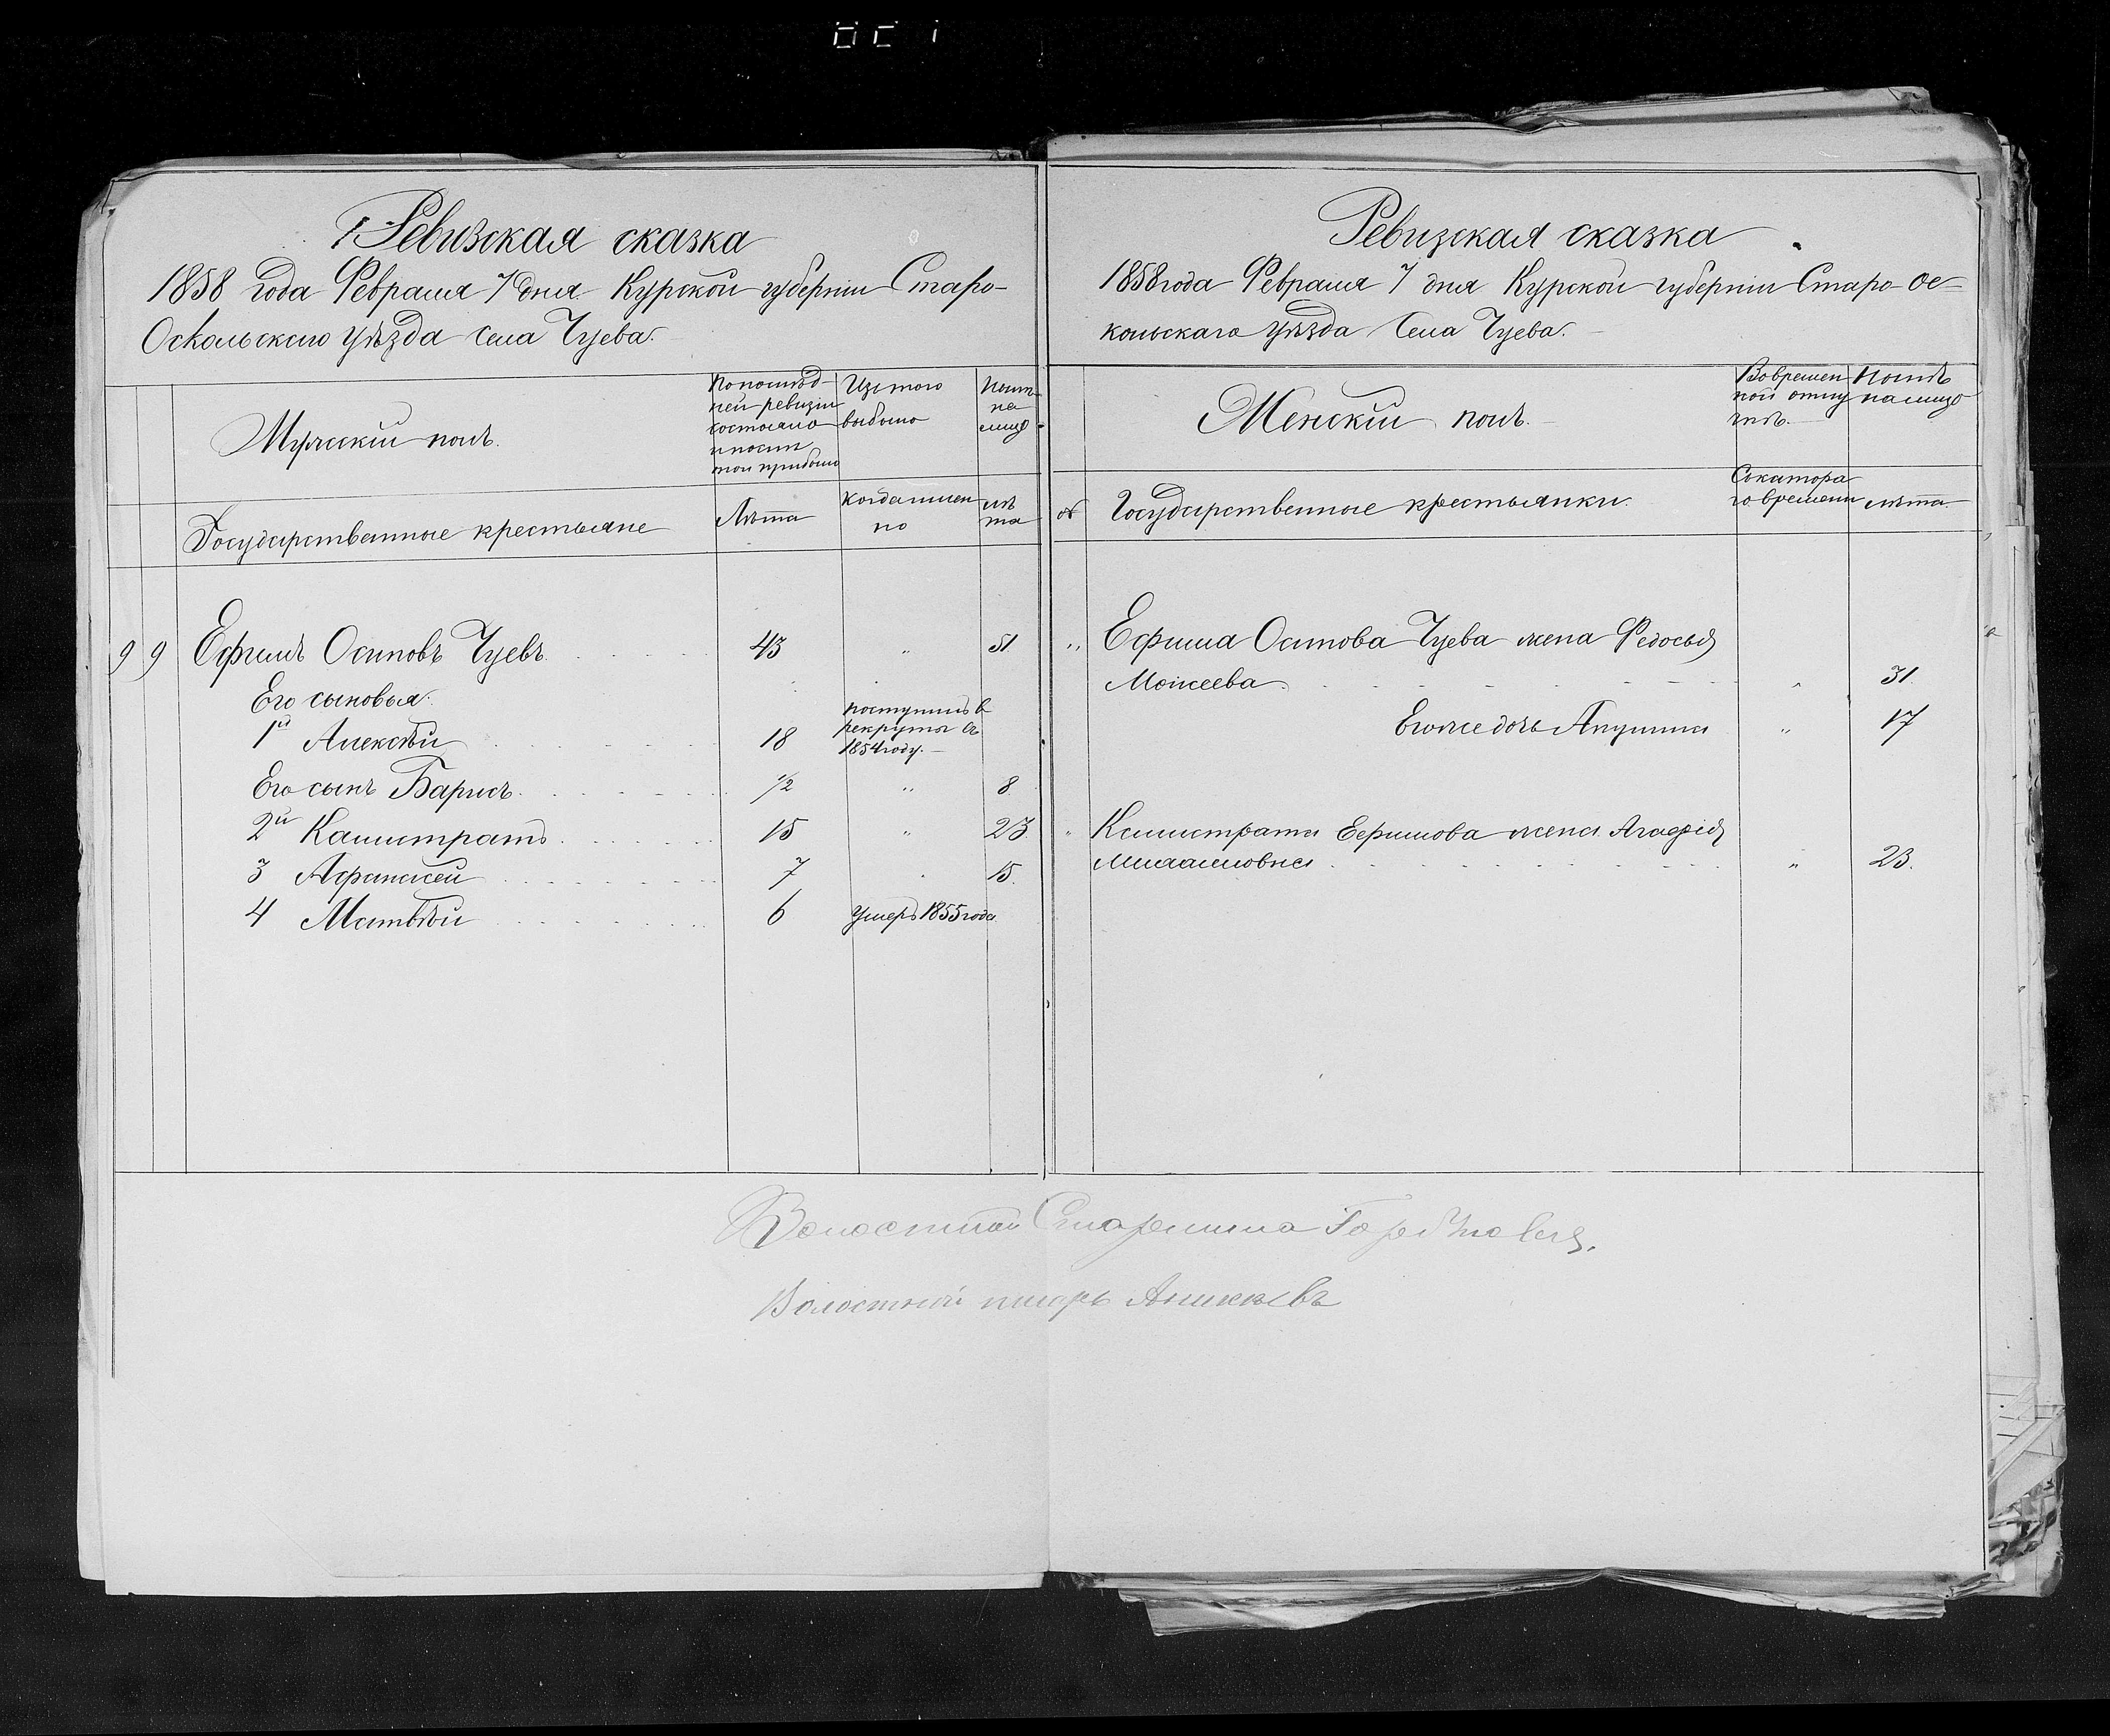 Ревизская сказка
1858 года Февраля 7 дня Курской губернии Старо-
Оскольскаго уѣзда села Чуева.
Мужескій полъ.
По послѣд-
ней ревизіи
состояло
и послѣ
той прибыло
Изъ того
выбыло
Нынѣ
на
лицо
Государственные крестьяне
Лѣта
Когда имен
но
лѣ
та
9 9 Ефимъ Осиповъ Чуевъ 43 " 51
Его сыновья.
1й Алексѣй 18 поступилъ в
рекруты въ
1854 году.
Его сынъ Барисъ 1/2 " 8
2й Калистратъ 15 " 23
3 Афанасей 7 " 15.
4 Матвѣй 6 умеръ 1855 года
Ревизская сказка
1858 года Февраля 7 дня Курской губерніи Старо-Ос-
кольскаго уѣзда Села Чуева.
Женскій полъ.
Во времен
ной отлу
чкѣ.
Нынѣ
на лицо
Государственные крестьянки.
Съ катора
го времени
лѣта.
" Ефима Осипова Чуева жена Федосья
Моисеева " 31
Егоже дочь Апулина " 17
" Калистрата Ефимова жена Агафія
Михаиловна " 23.
Волостной Старшина
Волостной писарь Аникѣевъ